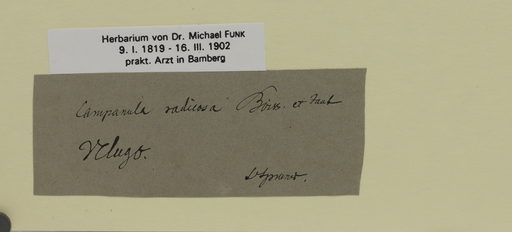 Herbarium von Dr. Michael FUNK
9. I. 1819 - 16. III. 1902
prakt. Arzt in Bamberg
Campanula radicosa Boiss. et